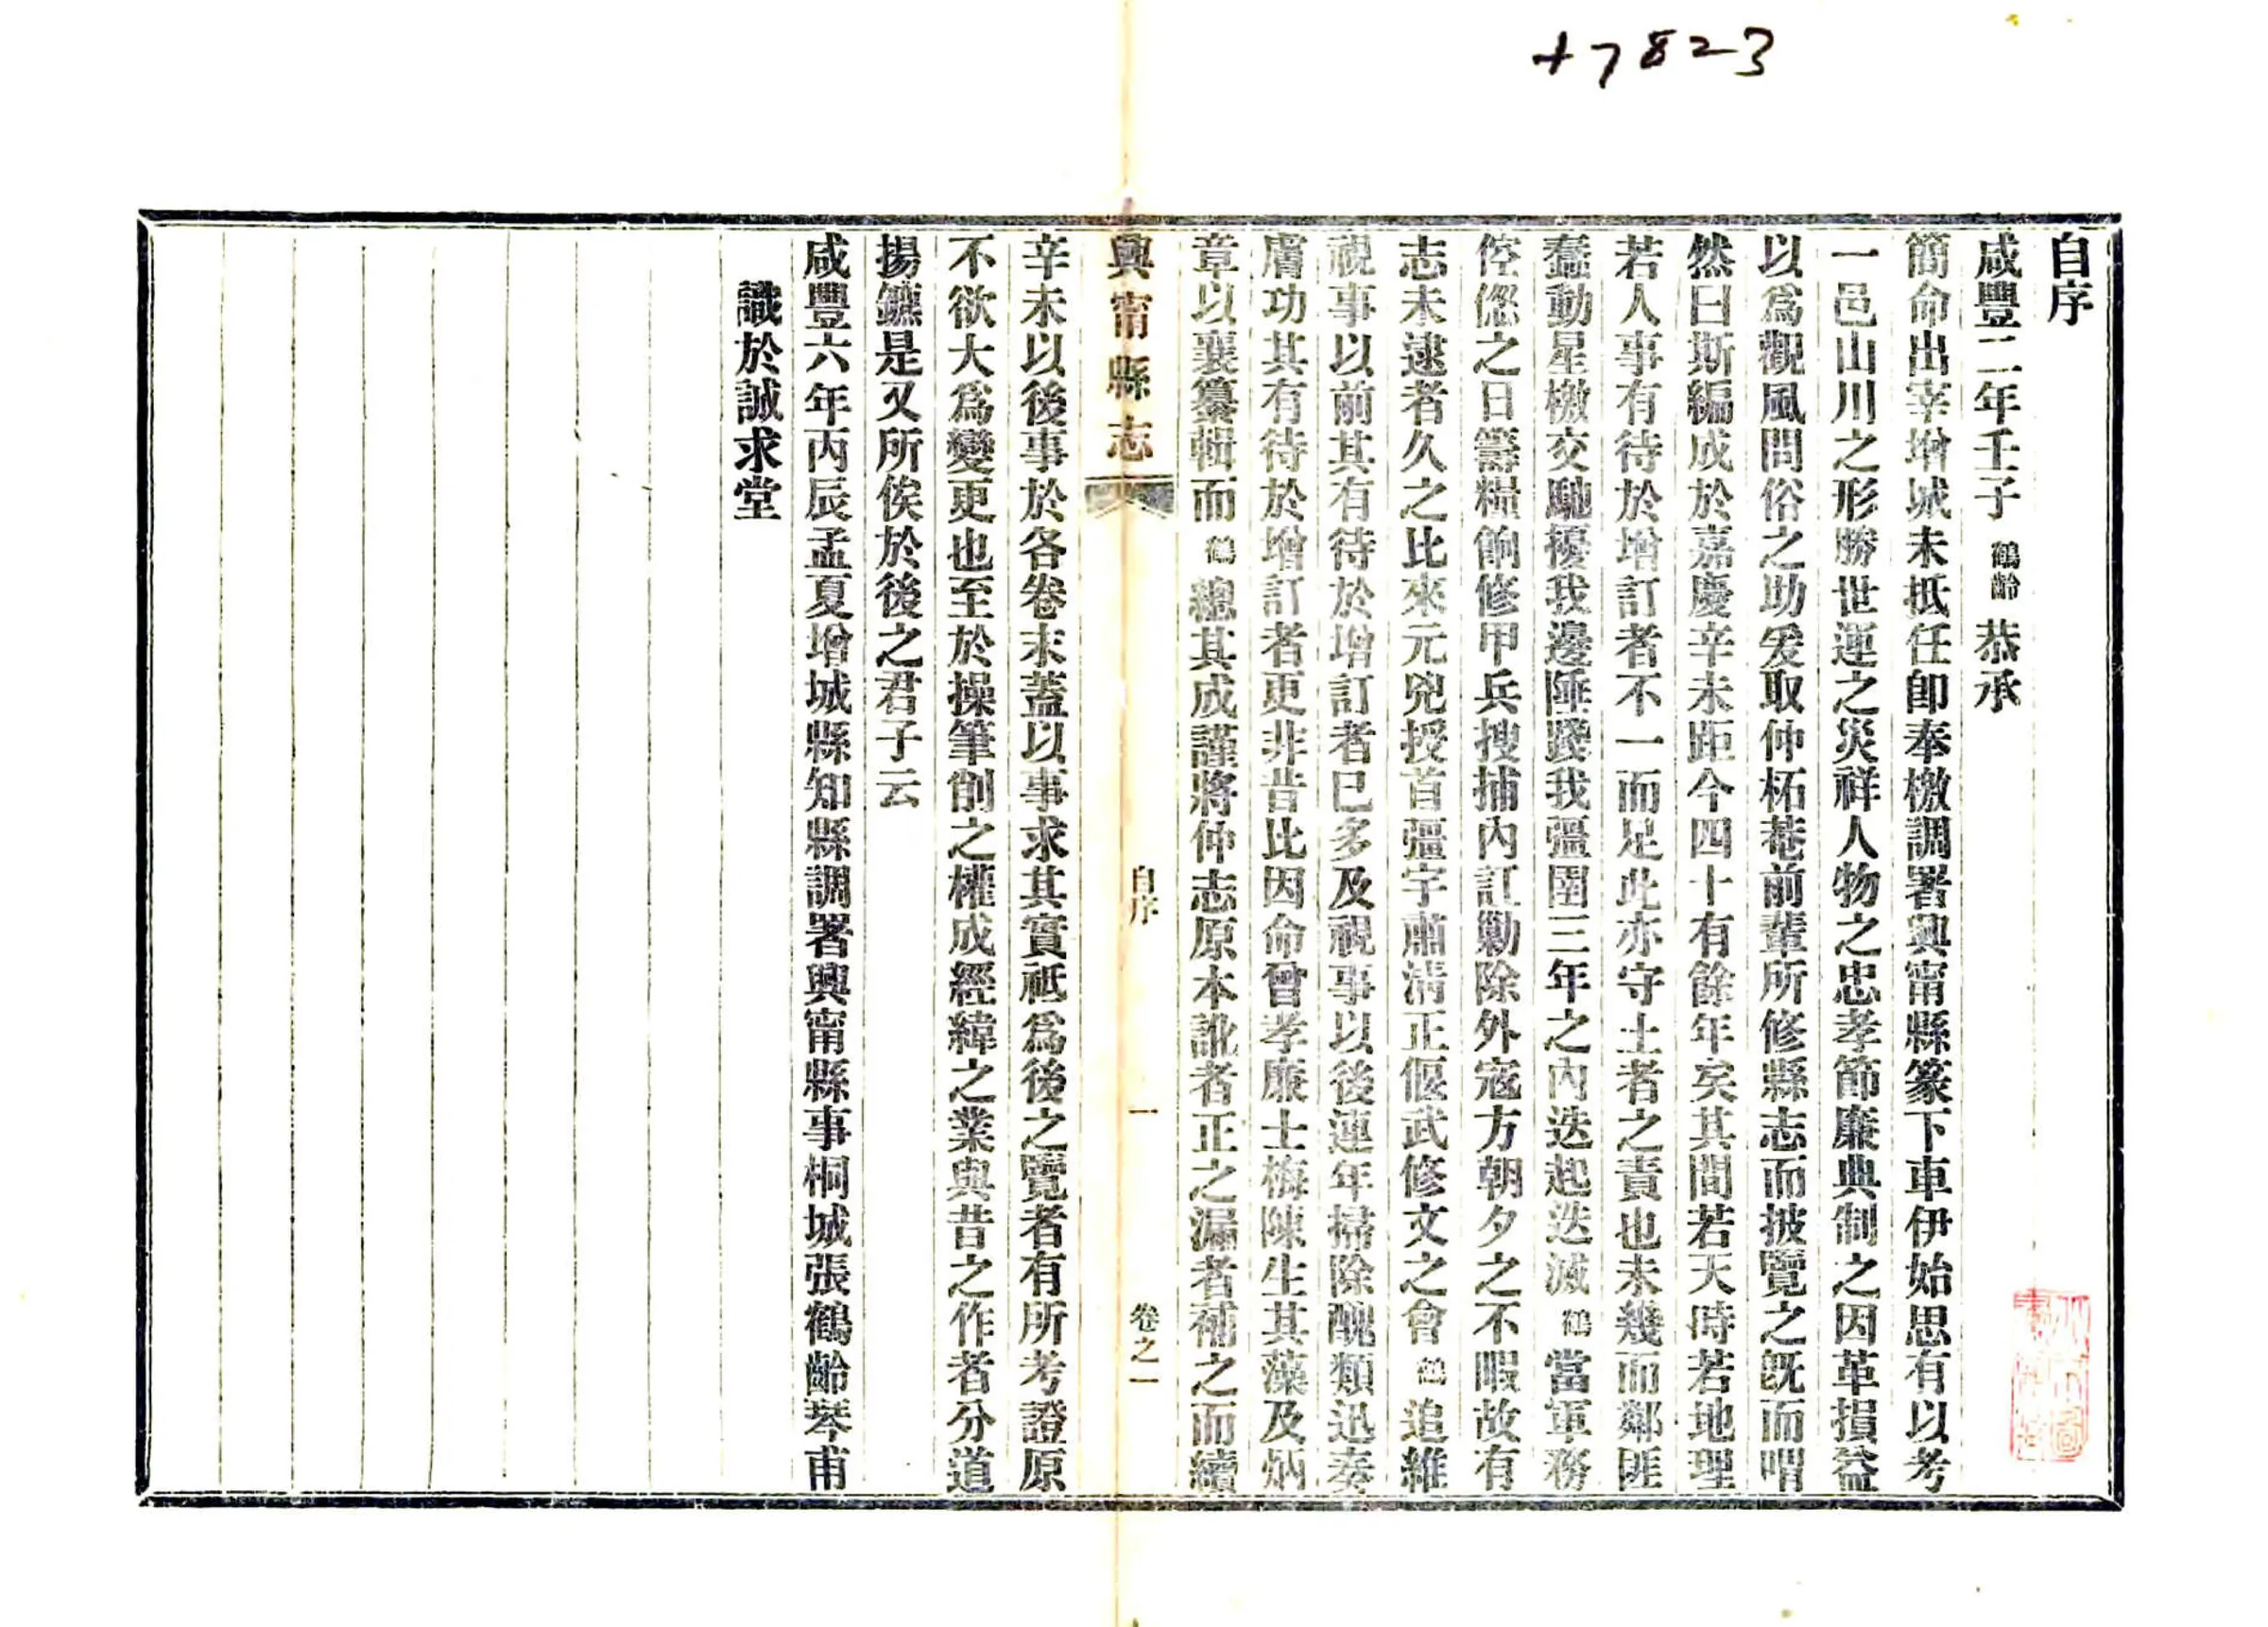 47823
自序
咸豐二年壬子鶴齡恭承
簡命出宰增城未抵任卽奉檄調署興甯縣篆下車伊始思有以考
一邑山川之形勝世運之災祥人物之忠孝節廉典制之因革損益
以爲觀風問俗之助爰取仲柘菴前輩所修縣志而披覽之旣而喟
然曰斯編成於嘉慶辛未距今四十有餘年矣其間若天時若地理
若人事有待於增訂者不一而足此亦守土者之責也未幾而鄰匪
蠢動星檄交馳擾我邊陲躒我彊圉三年之內迭起迭滅鶴當軍務
倥傯之日籌糧餉修甲兵搜捕內訌勦除外寇方朝夕之不暇故有
志未逮者久之比來元兇授首彊宇肅清正偃武修文之會鶴追維
視事以前其有待於增訂者已多及視事以後連年掃除醜類迅奏
膚功其有待於增訂者更非昔比因命曾孝廉士梅陳生其藻及炳
章以襄纂輯而鶴總其成謹將仲志原本訛者正之漏者補之而續
興甯縣志
自序
一
卷之一
辛未以後事於各卷末蓋以事求其實祗爲後之覽者有所考證原
不欲大爲變更也至於操筆削之權成經緯之業與昔之作者分道
揚鑣是又所俟於後之君子云
咸豐六年丙辰孟夏增城縣知縣調署興甯縣事桐城張鶴齡琴甫
識於誠求堂